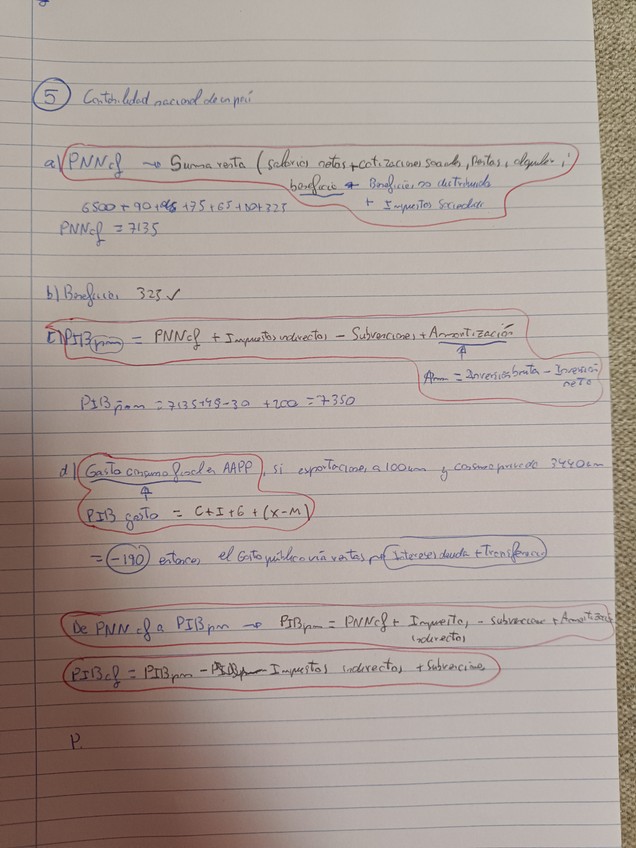 5 Contabilidad nacional de un país
a) PNNcf → Suma renta (salarios netos + cotizaciones sociales, Rentas, alquiler,
beneficio + Beneficios no distribuido
+ Impuestos Sociedades
6500 + 90 + + 75 + 65 + + 325
PNNcf = 7135
b) Beneficios 325 ✓
c) PIBpm = PNNcf + Impuestos indirectos - Subvenciones + Amortización
Am = Inversión bruta - Inversión
neta
PIBpm = 7135 + 45 - 30 + 200 = 7350
d) Gasto consumo final AAPP, si exportaciones a 100um y consumo privado 3440um
PIB gasto = C + I + G + (X - M)
= -190 entonces el Gasto público vía rentas Intereses deuda + Transferencia
De PNNcf a PIBpm → PIBpm = PNNcf + Impuestos - subvenciones + Amortización
indirectos
PIBcf = PIBpm - Impuestos indirectos + Subvenciones
P.